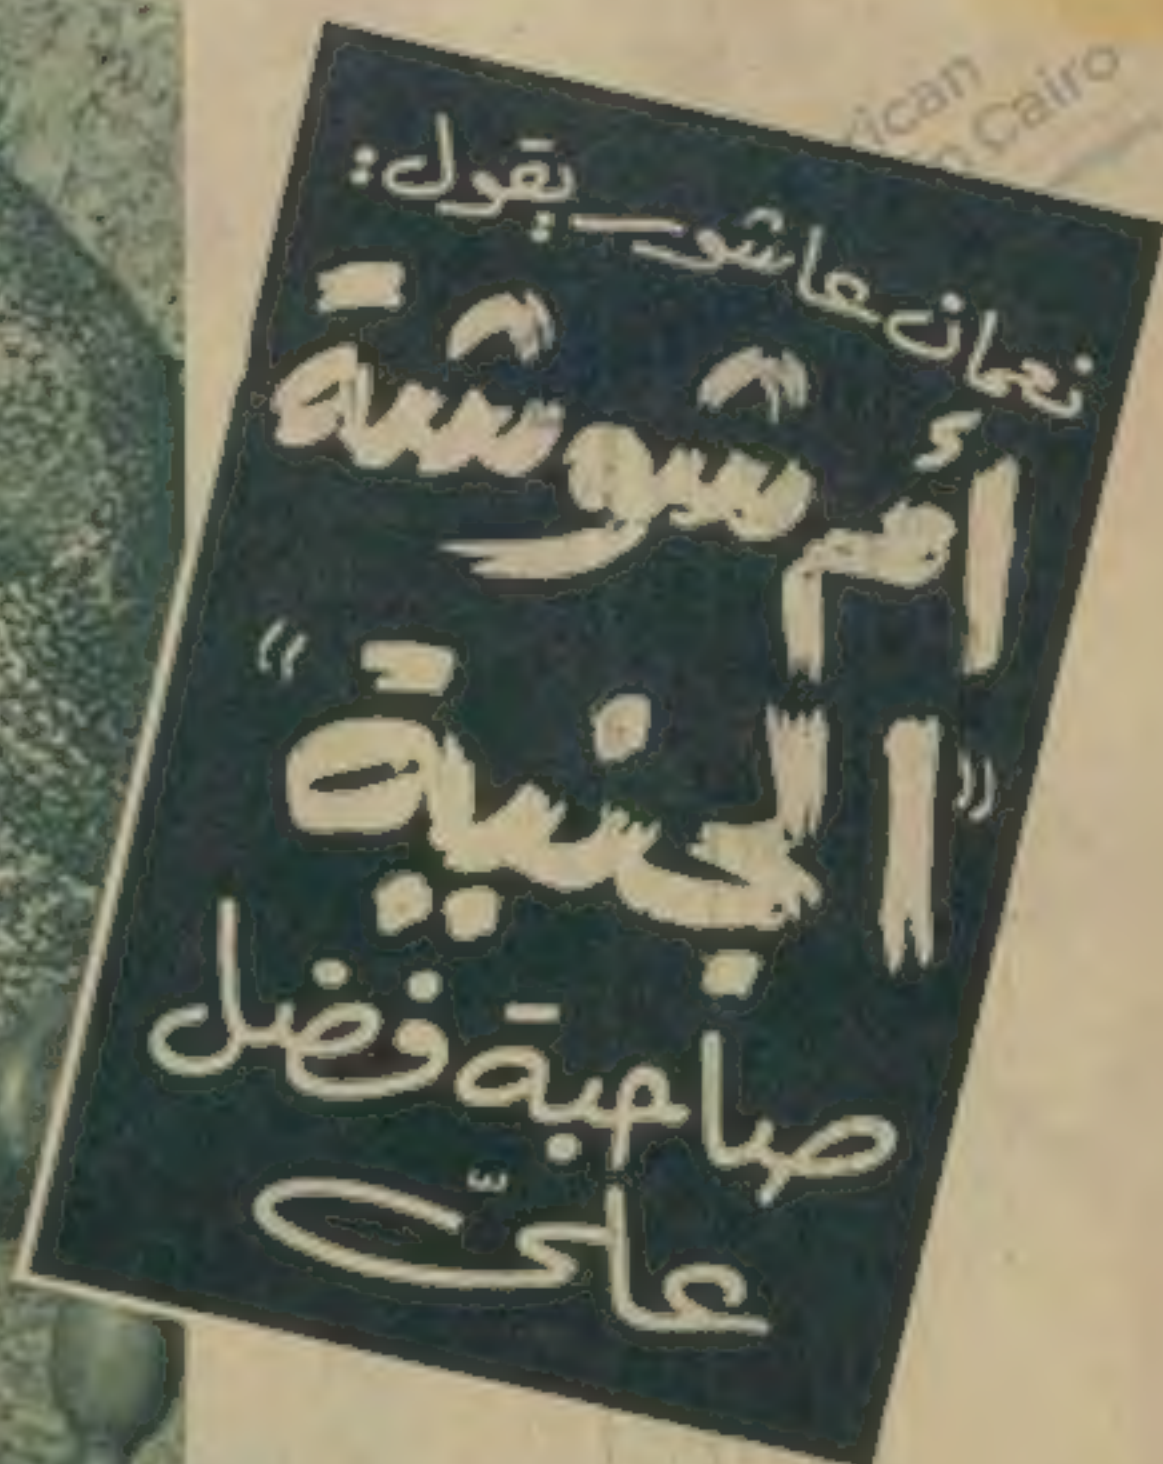 rican
n Cairo
نعمان عاشور يقول:
أم شوشة
"الجنية"
صاحبة فضل
علىّ